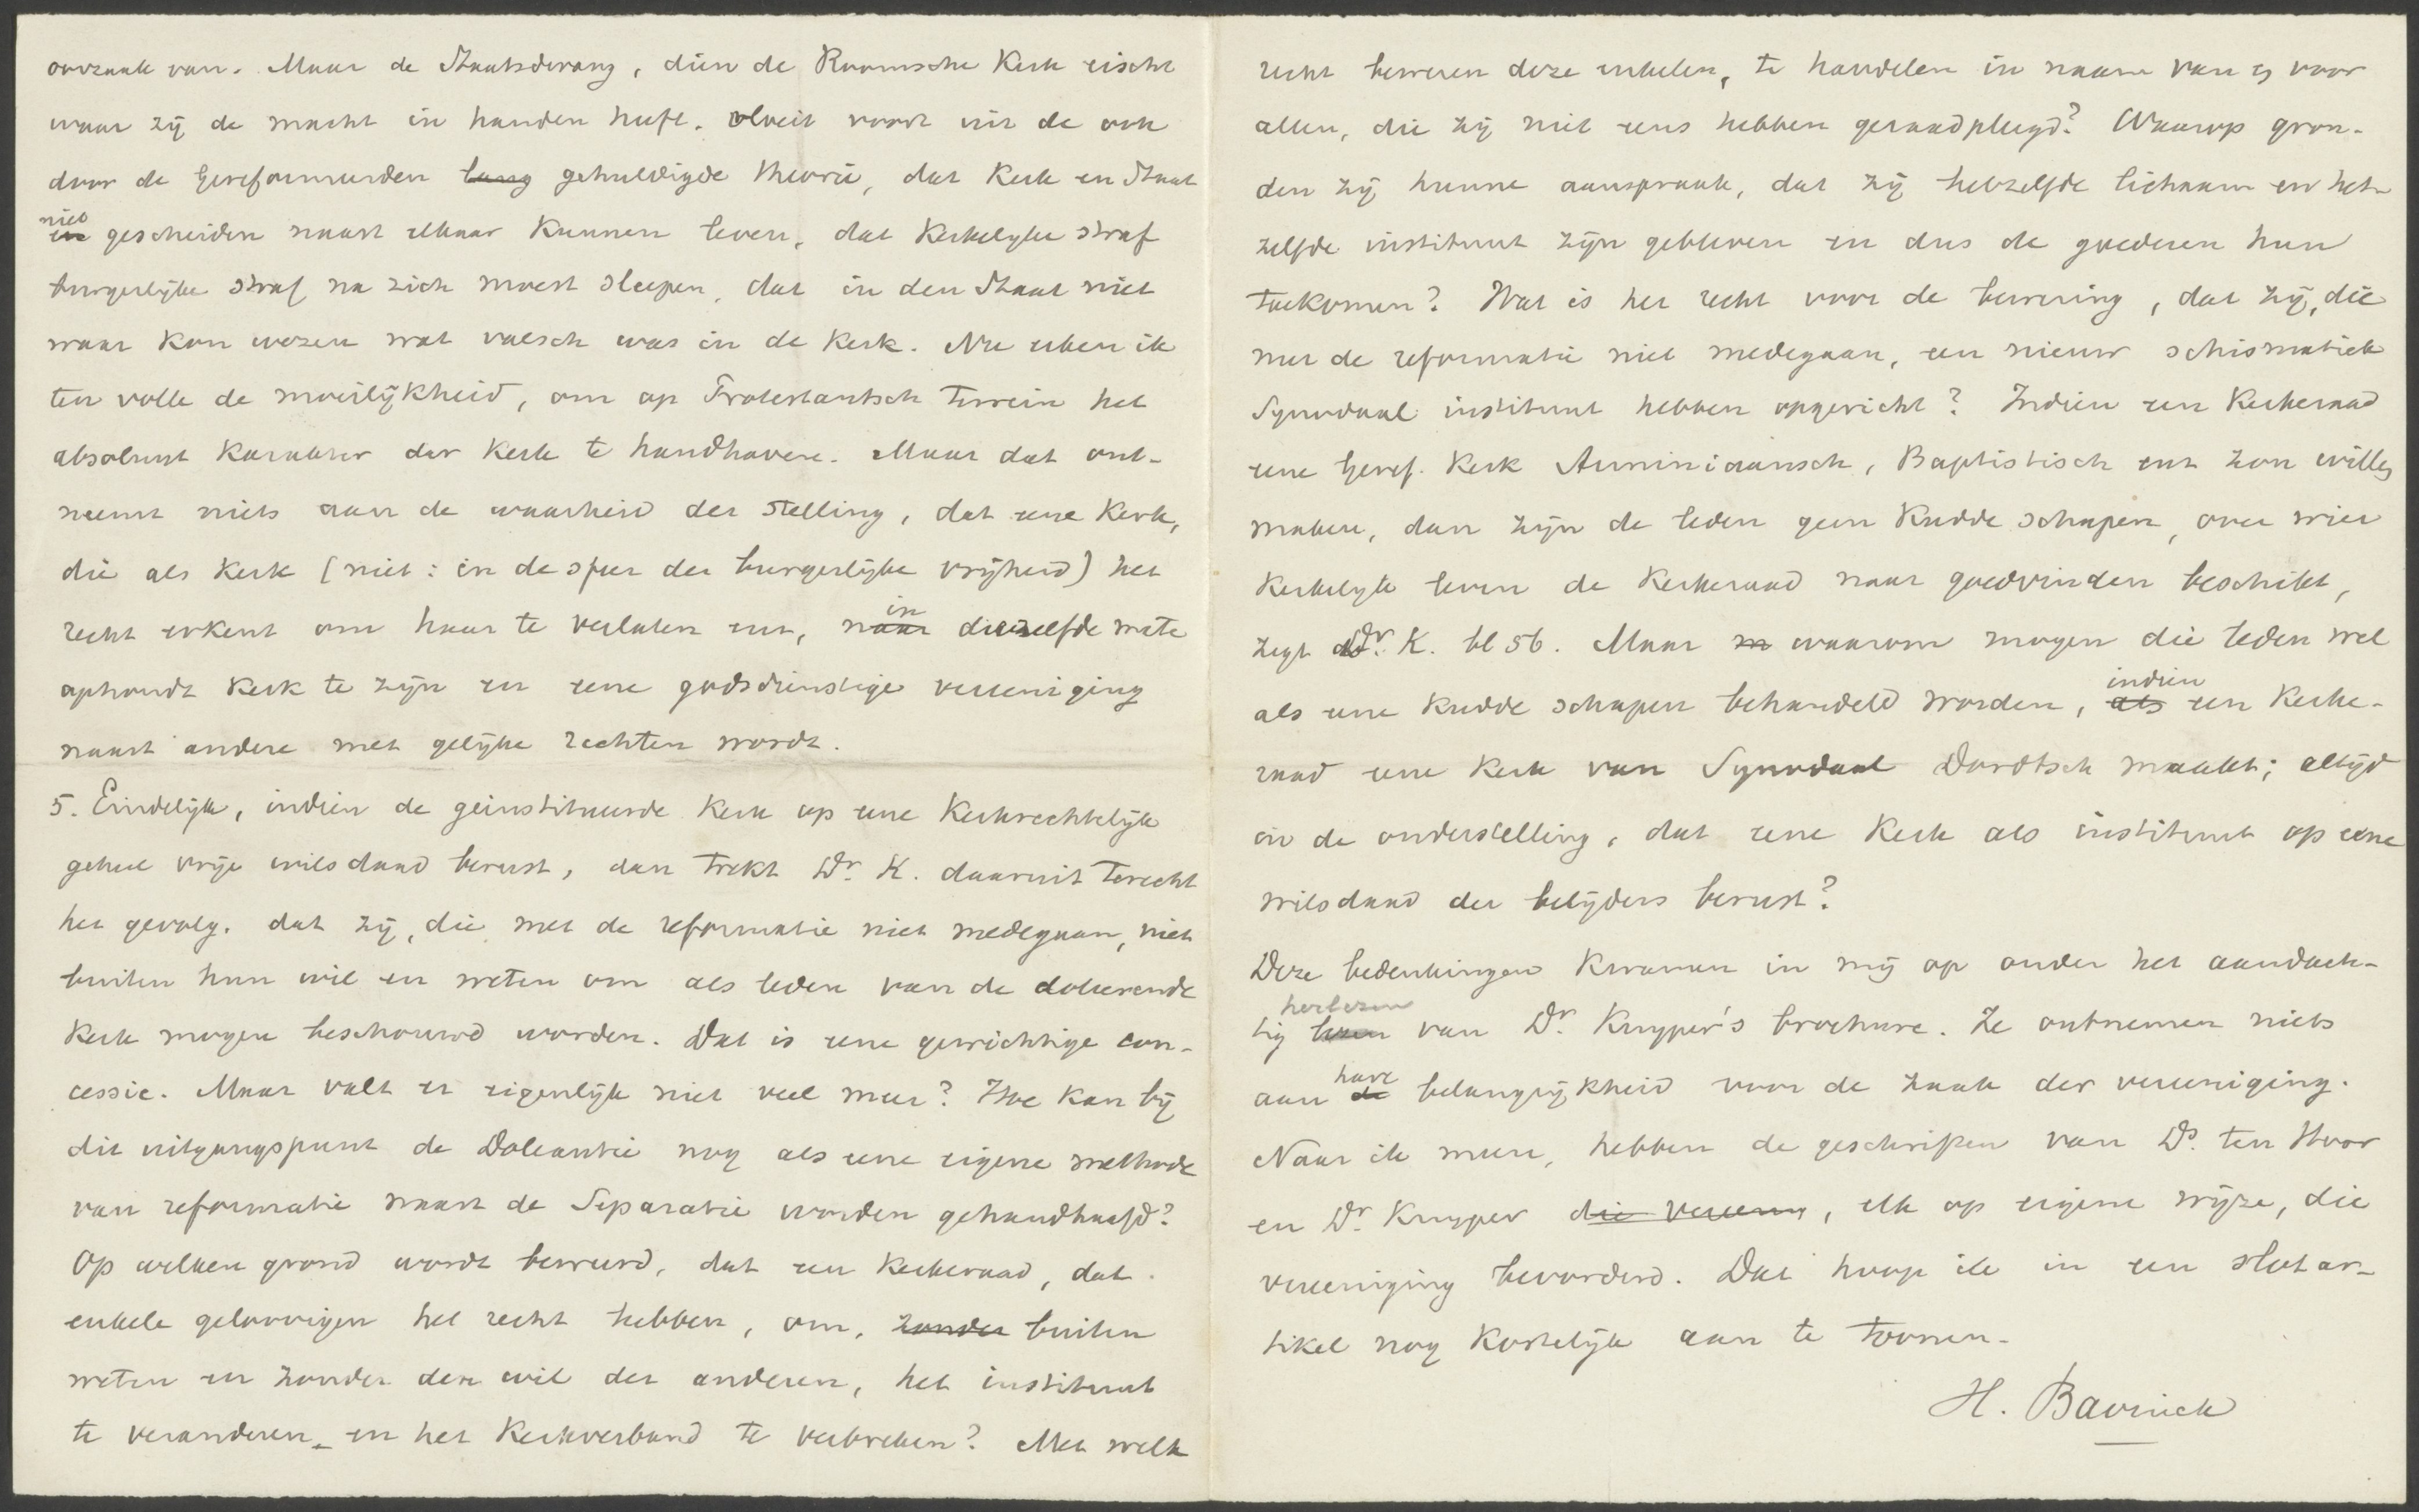 oorzaak van. Maar de Staatsdwang, dien de Roomsche Kerk eischt
waar zij de macht in handen heeft, vloeit voort uit de ook
door de Gereformeerden lang gehuldigde theorie, dat Kerk en Staat
niet en gescheiden naast elkaar kunnen leven, dat Kerkelyke straf
burgerlijke straf na zich moest sleepen, dat in den Staat niet
waar kon wezen wat valsch was in de Kerk. Nu erken ik
ten volle de moeilijkheid, om op Protestantsch terrein het
absoluut karakter der Kerk te handhaven. Maar dat ont-
neemt niets aan de waarheid der stelling, dat eene Kerk,
die als Kerk (niet: in de sfeer der burgerlijke vrijheid) het
recht erkent om haar te verlaten enz, naar in diezelfde mate
ophoudt Kerk te zijn en eene godsdienstige vereeniging
naast andere met gelijke rechten wordt.
5. Eindelijk, indien de geinstitueerde Kerk op eene Kerkrechtelijk
geheel vrije wilsdaad berust, dan trekt Dr. K. daaruit terecht
het gevolg, dat zij, die met de reformatie niet medegaan, niet
buiten hun wil en weten om als leden van de doleerende
Kerk mogen beschouwd worden. Dat is eene gewichtige con-
cessie. Maar valt er eigenlijk niet veel meer? Hoe kan bij
dit uitgangspunt de Doleantie nog als eene eigene methode
van reformatie naast de Separatie worden gehandhaafd?
Op welken grond wordt beweerd, dat een Kerkeraad, dat
enkele geloovigen het recht hebben, om, zonder buiten
weten en zonder den wil der anderen, het instituut
te veranderen en het Kerkverband te verbreken? Met welk
recht beweren deze enkelen, te handelen in naam van en voor
allen, die zij niet eens hebben geraadpleegd? Waarop gron-
den zij hunne aanspraak, dat zij hetzelfde lichaam en het-
zelfde instituut zijn gebleven en dus de goederen hun
toekomen? Wat is het recht voor de bewering, dat zij, die
met de reformatie niet medegaan, een nieuw schismatiek
Synodaal instituut hebben opgericht? Indien een Kerkeraad
eene Geref. Kerk Arminiaansch, Baptistisch enz zou willen
maken, dan zijn de leden geen Kudde schapen, over wier
Kerkelyk leven de Kerkeraad naar goedvinden beschikt,
zegt Dr. K. bl 56. Maar waarom mogen die leden wel
als eene Kudde schapen behandeld worden, als indien een Kerke-
raad eene Kerk van Synodaal Dordtsch maakt; altijd
in de onderstelling, dat eene Kerk als instituut op eene
wilsdaad der belijders berust?
Deze bedenkingen kwamen in mij op onder het aandach-
tig lezen herlezen van Dr. Kuyper's brochure. Ze ontnemen niets
aan de hare belangrijkheid voor de zaak der vereeniging.
Naar ik meen, hebben de geschriften van Ds. ten Hoor
en Dr. Kuyper die vereenig, elk op eigene wijze, die
vereeniging bevorderd. Dat hoop ik in een slotar-
tikel nog kortelijk aan te toonen.
H. Bavinck